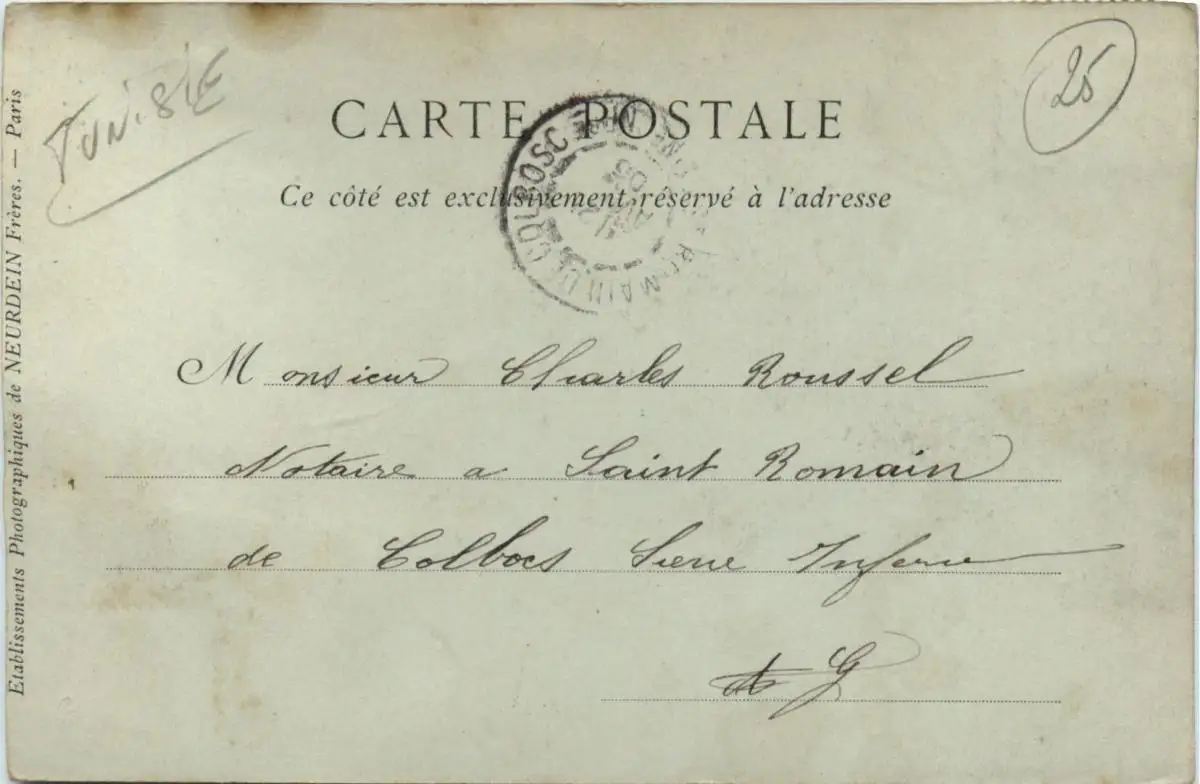 TUNISIE
25
CARTE POSTALE
Ce côté est exclusivement réservé à l'adresse
ROMAIN DE COLBOSC
05
Monsieur Charles Roussel
Notaire a Saint Romain
de Colbocs
G
Etablissements Photographiques de NEURDEIN Frères. — Paris